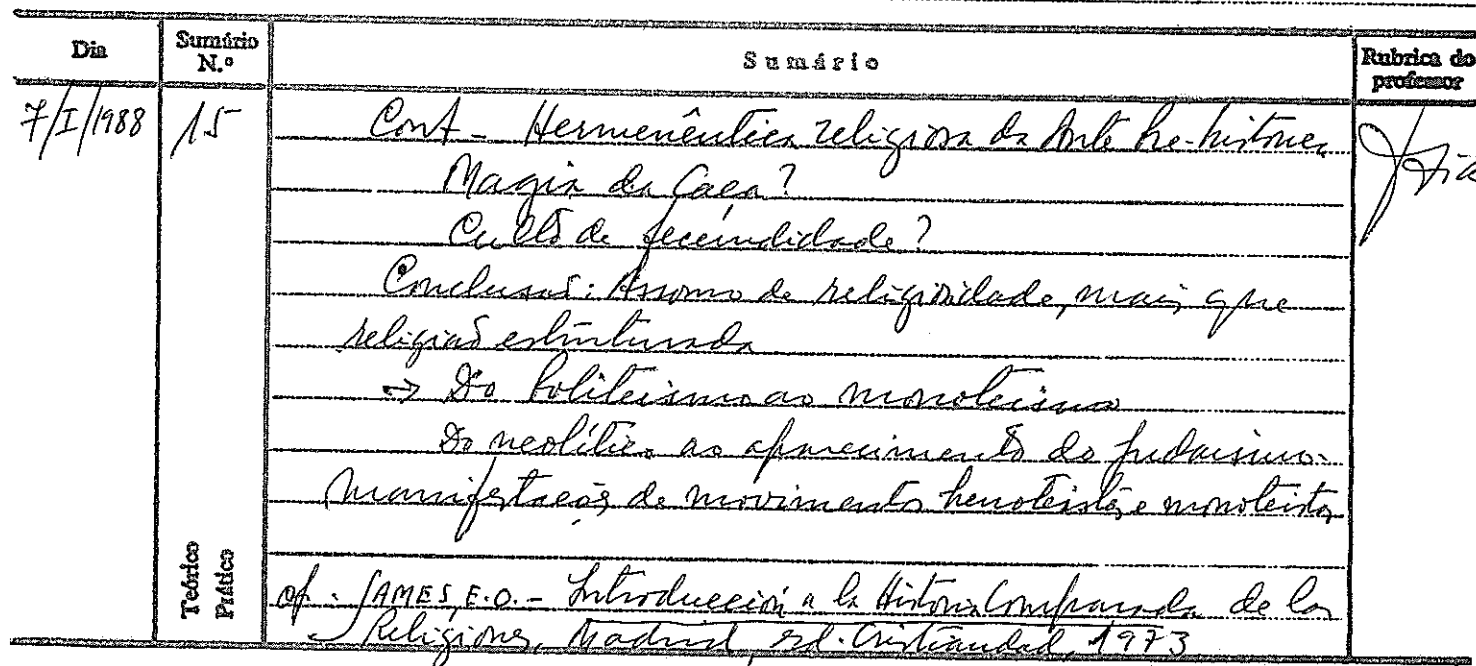 Dia Sumário N.º Sumário Rubrica do professor
7/I/1988 15 Cont - Hermenêutica religiosa da Arte Pré-histórica
Magia da Caça?
Culto de fecundidade?
Conclusão: Assomo de religiosidade, mais que
religião estruturada
↔ Do Politeismo ao monoteismo
Do neolítico ao aparecimento do judaismo.
Manifestações de movimentos henoteistas e monoteistas
Teórico
Prático
cf. JAMES, E.O. - Introducción a la Historia Comparada de las
Religiones, Madrid, ed. Cristiandad, 1973